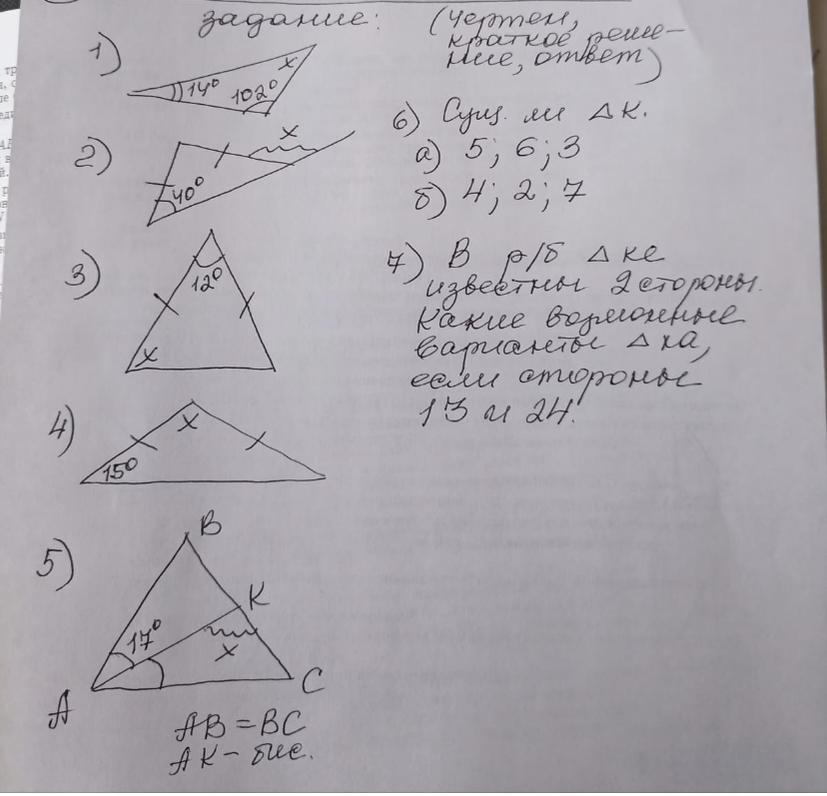 задание: (чертеж,
краткое реше-
ние, ответ)
1) 14° 102° x
2) 40° x
3) 12° x
4) 15° x
5) A B C K 17° x
AB = BC
AK - бис.
6) Сущ. ли △к.
а) 5; 6; 3
б) 4; 2; 7
7) В р/б △ке
известны 2 стороны.
Какие возможные
варианты △ка,
если стороны
13 и 24.